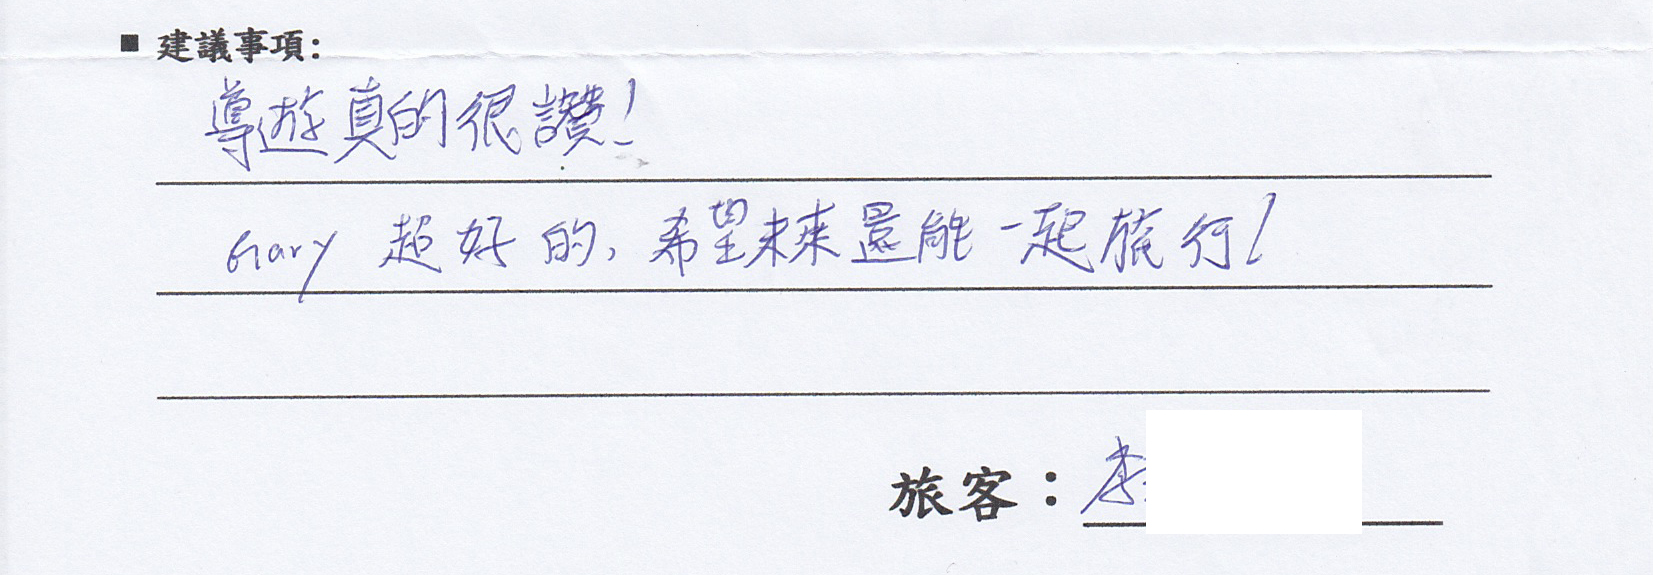 ■ 建議事項:
導遊真的很讚!
Gary 超好的, 希望未來還能一起旅行!
旅客：李